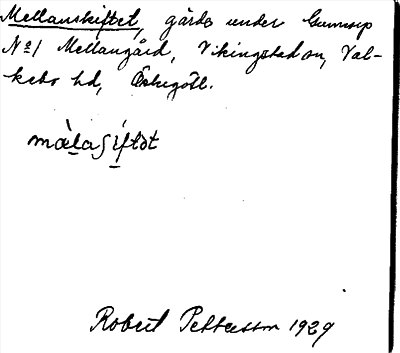 Mellanskiftet, gärde under Gunnorp
No 1 Mellangård, Vikingstad sn, Val-
kebo hd, Östergötl.
Robert Pettersson 1929